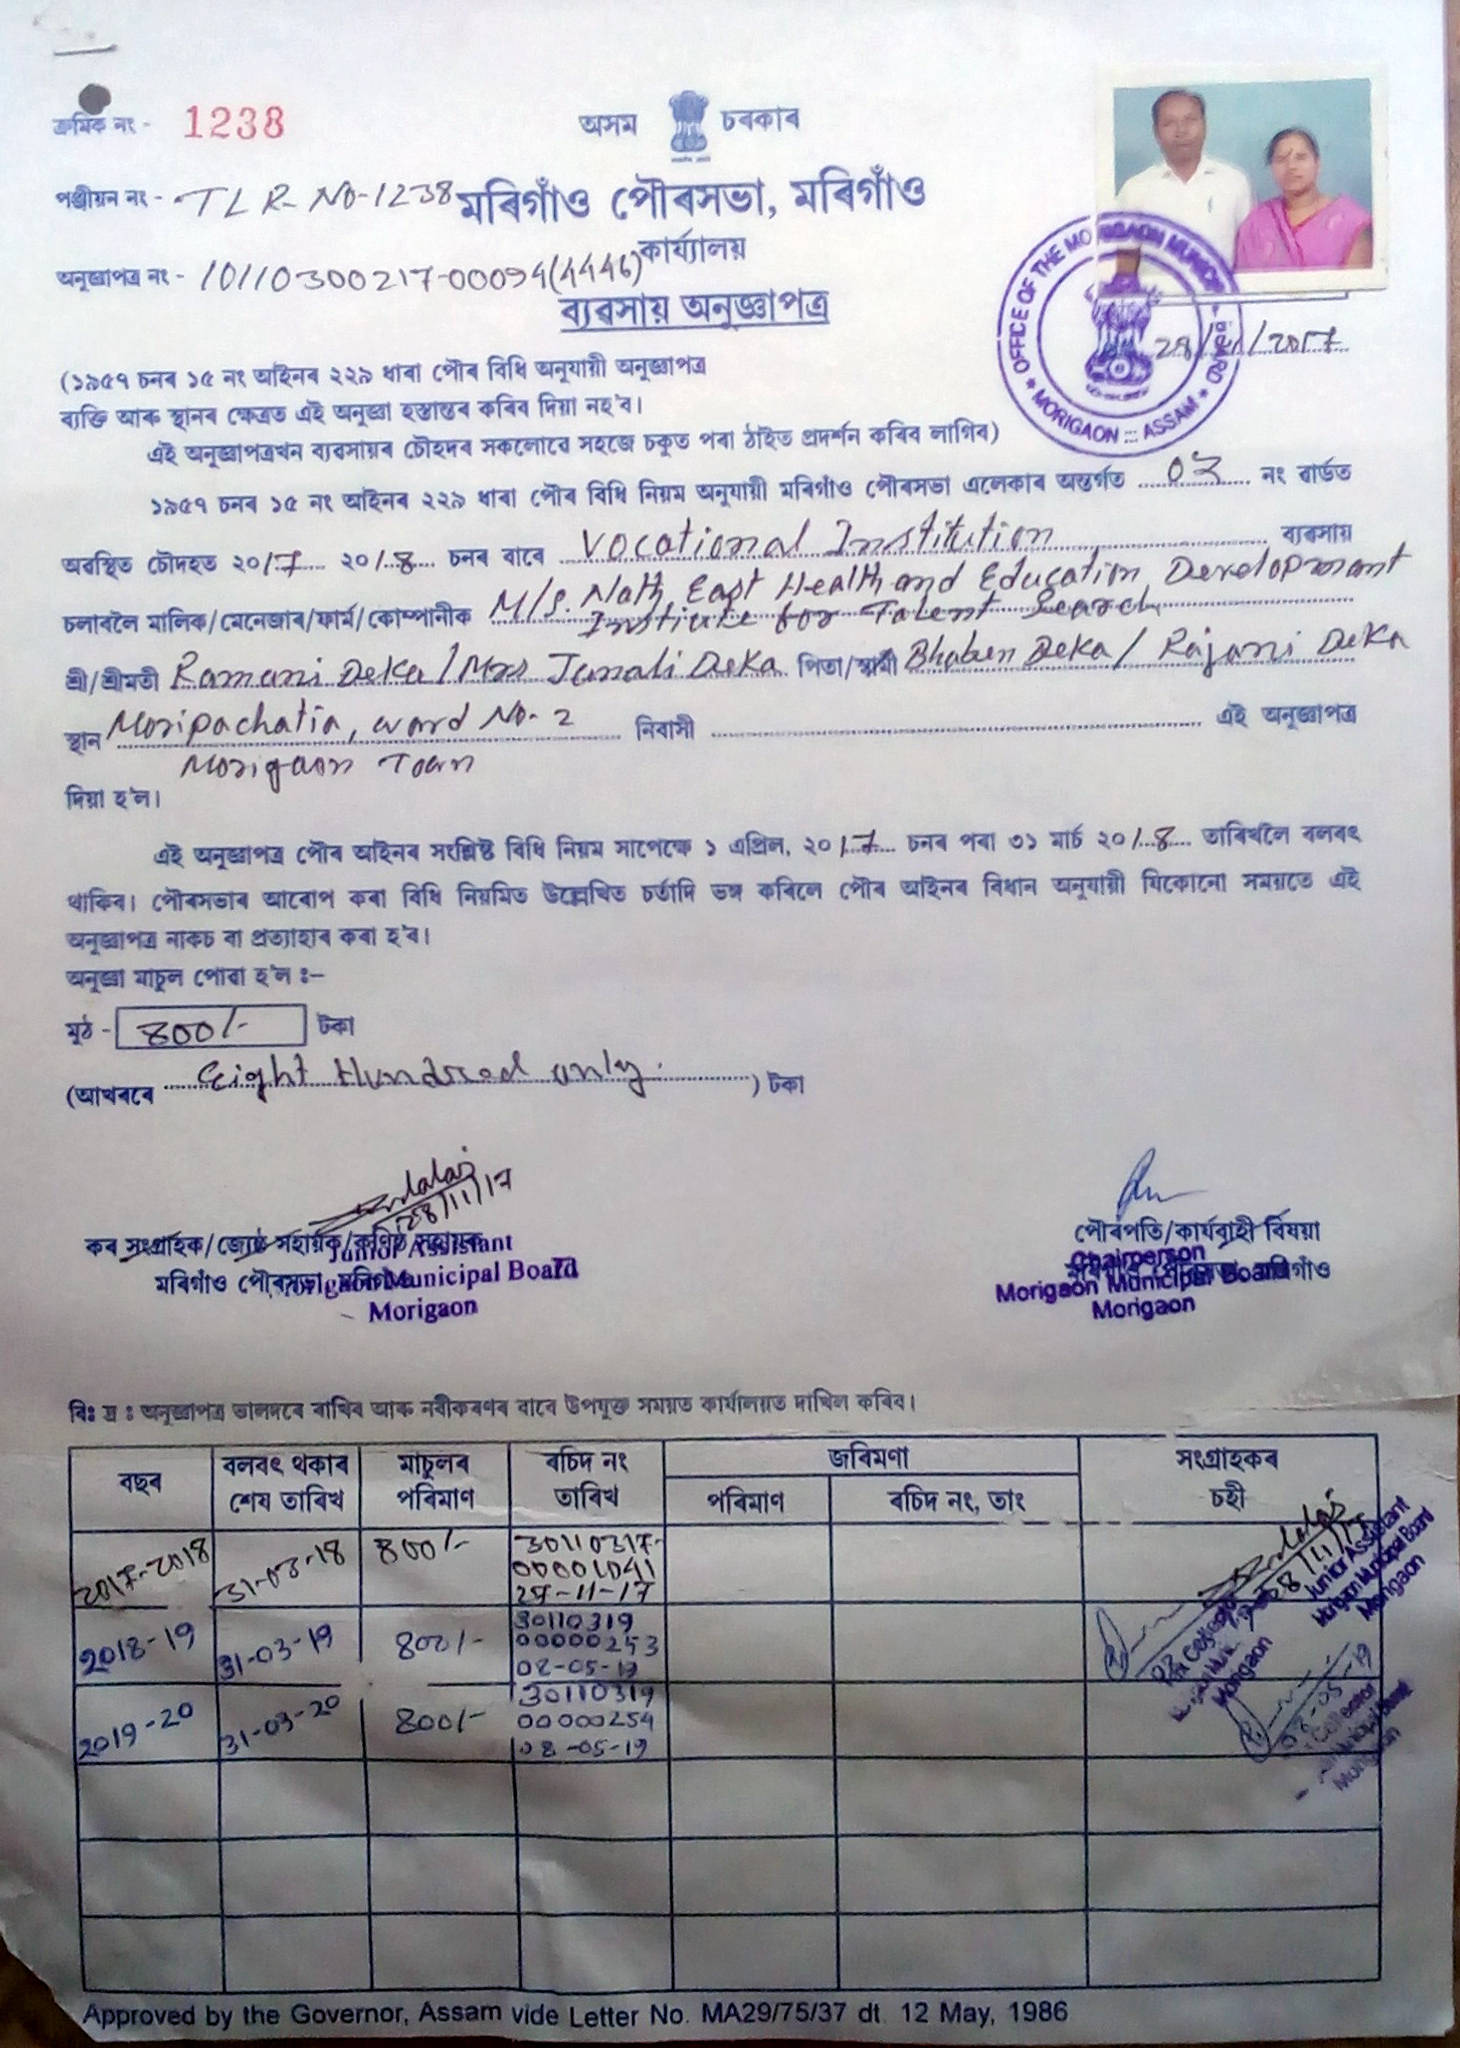 ক্ৰমিক নং - 1238
অসম চৰকাৰ
পঞ্জীয়ন নং - TLR-NO-1238
মৰিগাঁও পৌৰসভা, মৰিগাঁও
কাৰ্য্যালয়
অনুজ্ঞাপত্ৰ নং - 10110300217-00094(4446)
ব্যৱসায় অনুজ্ঞাপত্ৰ
OFFICE OF THE MORIGAON MUNICIPAL BOARD
MORIGAON ::: ASSAM
28/11/2017
(১৯৫৭ চনৰ ১৫ নং আইনৰ ২২৯ ধাৰা পৌৰ বিধি অনুযায়ী অনুজ্ঞাপত্ৰ
ব্যক্তি আৰু স্থানৰ ক্ষেত্ৰত এই অনুজ্ঞা হস্তান্তৰ কৰিব দিয়া নহ'ব।
এই অনুজ্ঞাপত্ৰখন ব্যৱসায়ৰ চৌহদৰ সকলোৱে সহজে চকুত পৰা ঠাইত প্ৰদৰ্শন কৰিব লাগিব)
১৯৫৭ চনৰ ১৫ নং আইনৰ ২২৯ ধাৰা পৌৰ বিধি নিয়ম অনুযায়ী মৰিগাঁও পৌৰসভা এলেকাৰ অন্তৰ্গত 02 নং ৱাৰ্ডত
অৱস্থিত চৌদহত ২০17 ২০18 চনৰ বাবে Vocational Institution ব্যৱসায়
চলাবলৈ মালিক/মেনেজাৰ/ফাৰ্ম/কোম্পানীক M/S. Nath East Health and Education Developmant
Institute for Talent Search
শ্ৰী/শ্ৰীমতী Ramani Deka / Mrs Junali Deka পিতা/স্বামী Bhaben Deka / Rajani Deka
স্থান Moripachatia, word No-2 নিবাসী এই অনুজ্ঞাপত্ৰ
Morigaon Town
দিয়া হ'ল।
এই অনুজ্ঞাপত্ৰ পৌৰ আইনৰ সংশ্লিষ্ট বিধি নিয়ম সাপেক্ষে ১ এপ্ৰিল, ২০17 চনৰ পৰা ৩১ মাৰ্চ ২০18 তাৰিখলৈ বলবৎ
থাকিব। পৌৰসভাৰ আৰোপ কৰা বিধি নিয়মিত উল্লেখিত চৰ্তাদি ভঙ্গ কৰিলে পৌৰ আইনৰ বিধান অনুযায়ী যিকোনো সময়তে এই
অনুজ্ঞাপত্ৰ নাকচ বা প্ৰত্যাহাৰ কৰা হ'ব।
অনুজ্ঞা মাচুল পোৱা হ'ল ঃ–
মুঠ - 800/- টকা
(আখৰৰে Eight Hundred only. ) টকা
28/11/17
কৰ সংগ্ৰাহক/জ্যেষ্ঠ সহায়ক/কণিষ্ঠ সহায়ক
Junior Assistant
মৰিগাঁও পৌৰসভা, মৰিগাঁও
Morigaon Municipal Board
Morigaon
পৌৰপতি/কাৰ্যবাহী বিষয়া
Chairperson
মৰিগাঁও পৌৰসভা, মৰিগাঁও
Morigaon Municipal Board
Morigaon
বিঃ দ্ৰ ঃ অনুজ্ঞাপত্ৰ ভালদৰে ৰাখিব আৰু নবীকৰণৰ বাবে উপযুক্ত সময়ত কাৰ্যালয়ত দাখিল কৰিব।
বছৰ বলবৎ থকাৰ শেষ তাৰিখ মাচুলৰ পৰিমাণ ৰচিদ নং তাৰিখ জৰিমণা সংগ্ৰাহকৰ চহী
পৰিমাণ ৰচিদ নং, তাং
2017-2018 31-03-18 800/- 30110317-
00001041
27-11-17
28/11/17
Junior Assistant
Morigaon Municipal Board
Morigaon
2018-19 31-03-19 800/- 30110319
00000253
02-05-19
Tax Collector
Morigaon
2019-20 31-03-20 800/- 30110319
00000254
08-05-19
08-05-19
Collector
Municipal Board
Morigaon
Approved by the Governor, Assam vide Letter No. MA29/75/37 dt. 12 May, 1986